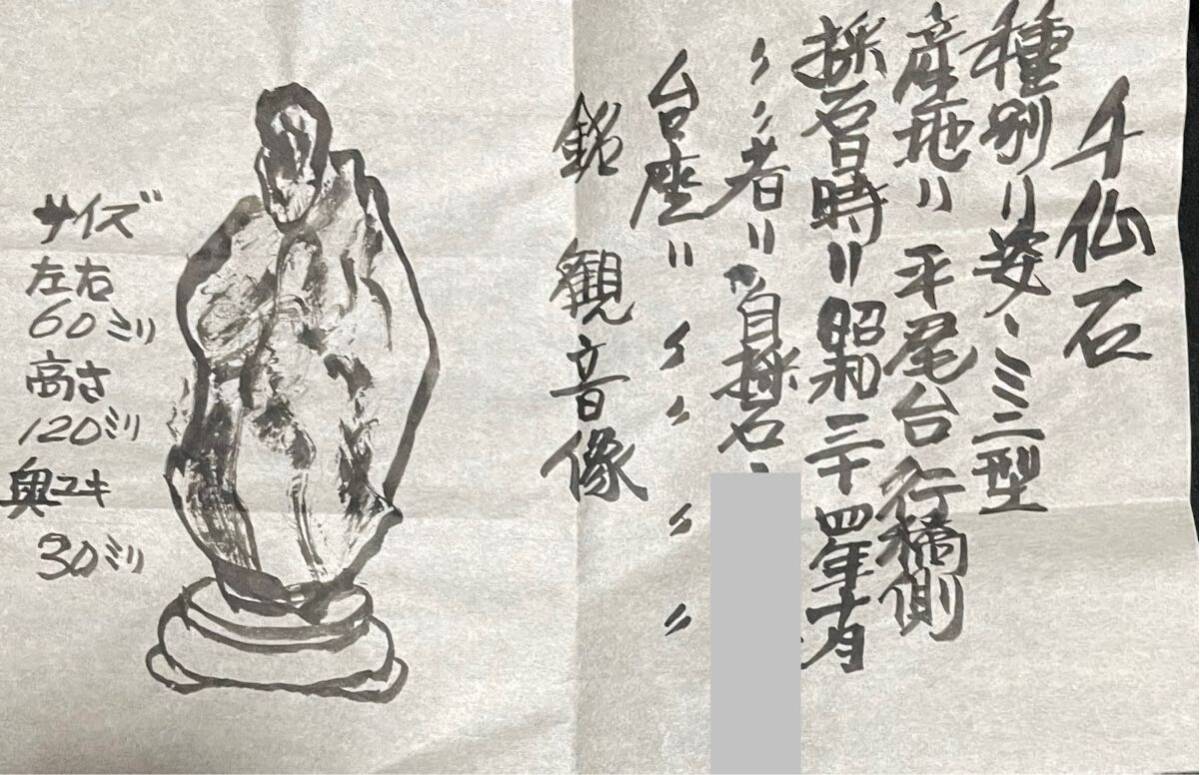 千仙石
種別〃姿、ミニ型
産地〃平尾台行橋側
採石日時〃昭和三十四年十月
〃〃者〃自採石、
台座〃〃〃〃〃
銘 観音像
サイズ
左右
60ミリ
高さ
120ミリ
奥ユキ
30ミリ